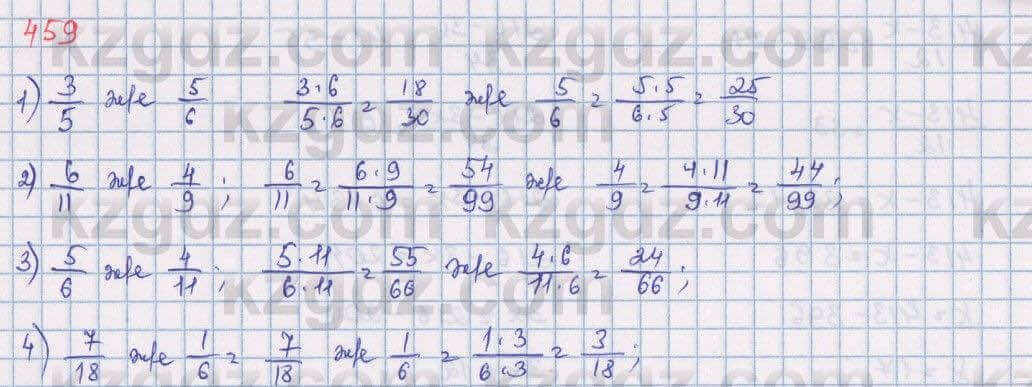 459
1) 3/5 және 5/6 3·6/5·6 = 18/30 және 5/6 = 5·5/6·5 = 25/30
2) 6/11 және 4/9; 6/11 = 6·9/11·9 = 54/99 және 4/9 = 4·11/9·11 = 44/99;
3) 5/6 және 4/11; 5·11/6·11 = 55/66 және 4·6/11·6 = 24/66;
4) 7/18 және 1/6 = 7/18 және 1/6 = 1·3/6·3 = 3/18;
kzgdz.com